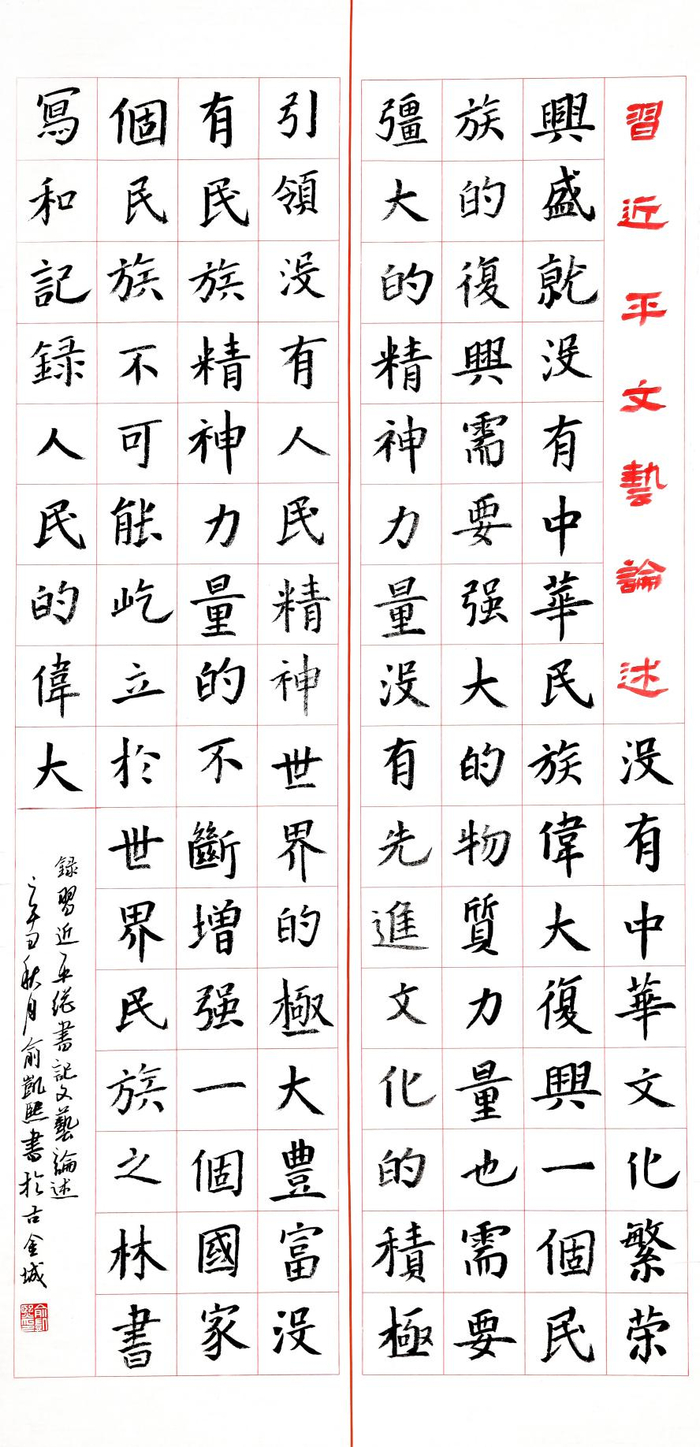 習近平文藝論述
没有中華文化繁荣
興盛就没有中華民族偉大復興一個民
族的復興需要强大的物質力量也需要
彊大的精神力量没有先進文化的積極
引領没有人民精神世界的極大豊富没
有民族精神力量的不斷增强一個國家
個民族不可能屹立於世界民族之林書
冩和記録人民的偉大
録習近平總書記文藝論述
秋月俞凱熙書於古金城